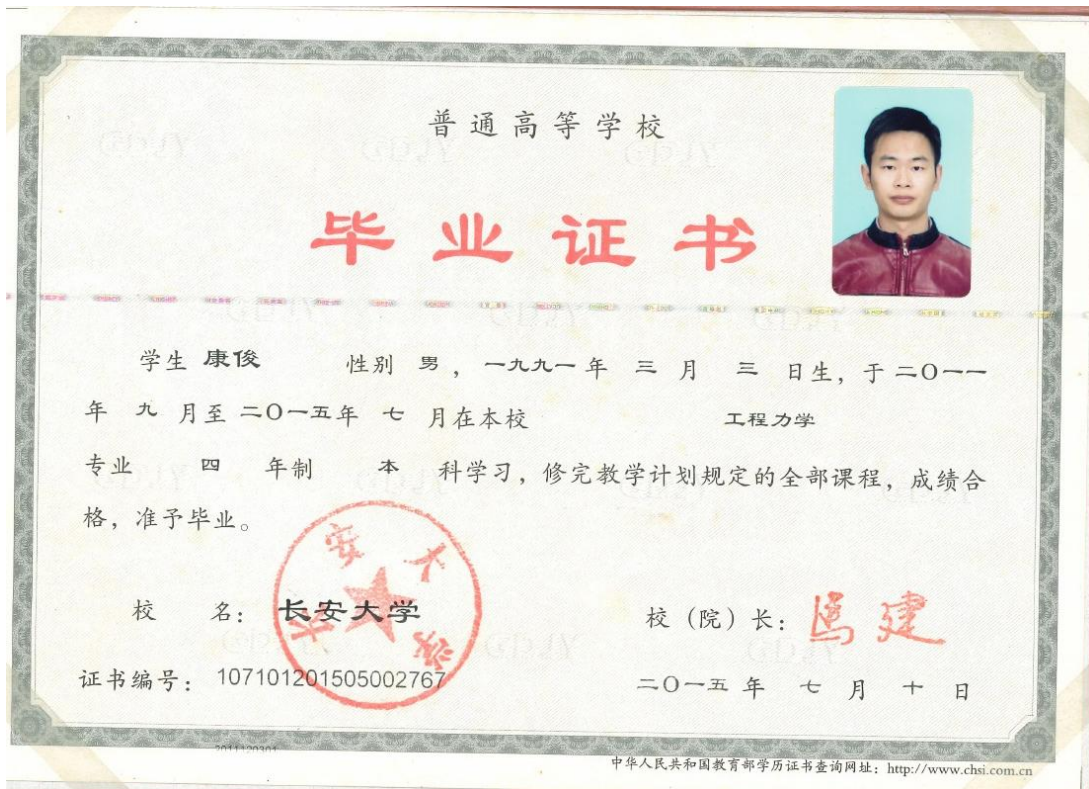 普通高等学校
毕业证书
学生 康俊 性别 男，一九九一年 三 月 三 日生，于二〇一一
年 九 月至二〇一五年 七 月在本校 工程力学
专业 四 年制 本 科学习，修完教学计划规定的全部课程，成绩合
格，准予毕业。
校 名：长安大学
长安大学
校（院）长：马建
证书编号：107101201505002767
二〇一五年 七 月 十 日
2011120301
中华人民共和国教育部学历证书查询网址：http://www.chsi.com.cn